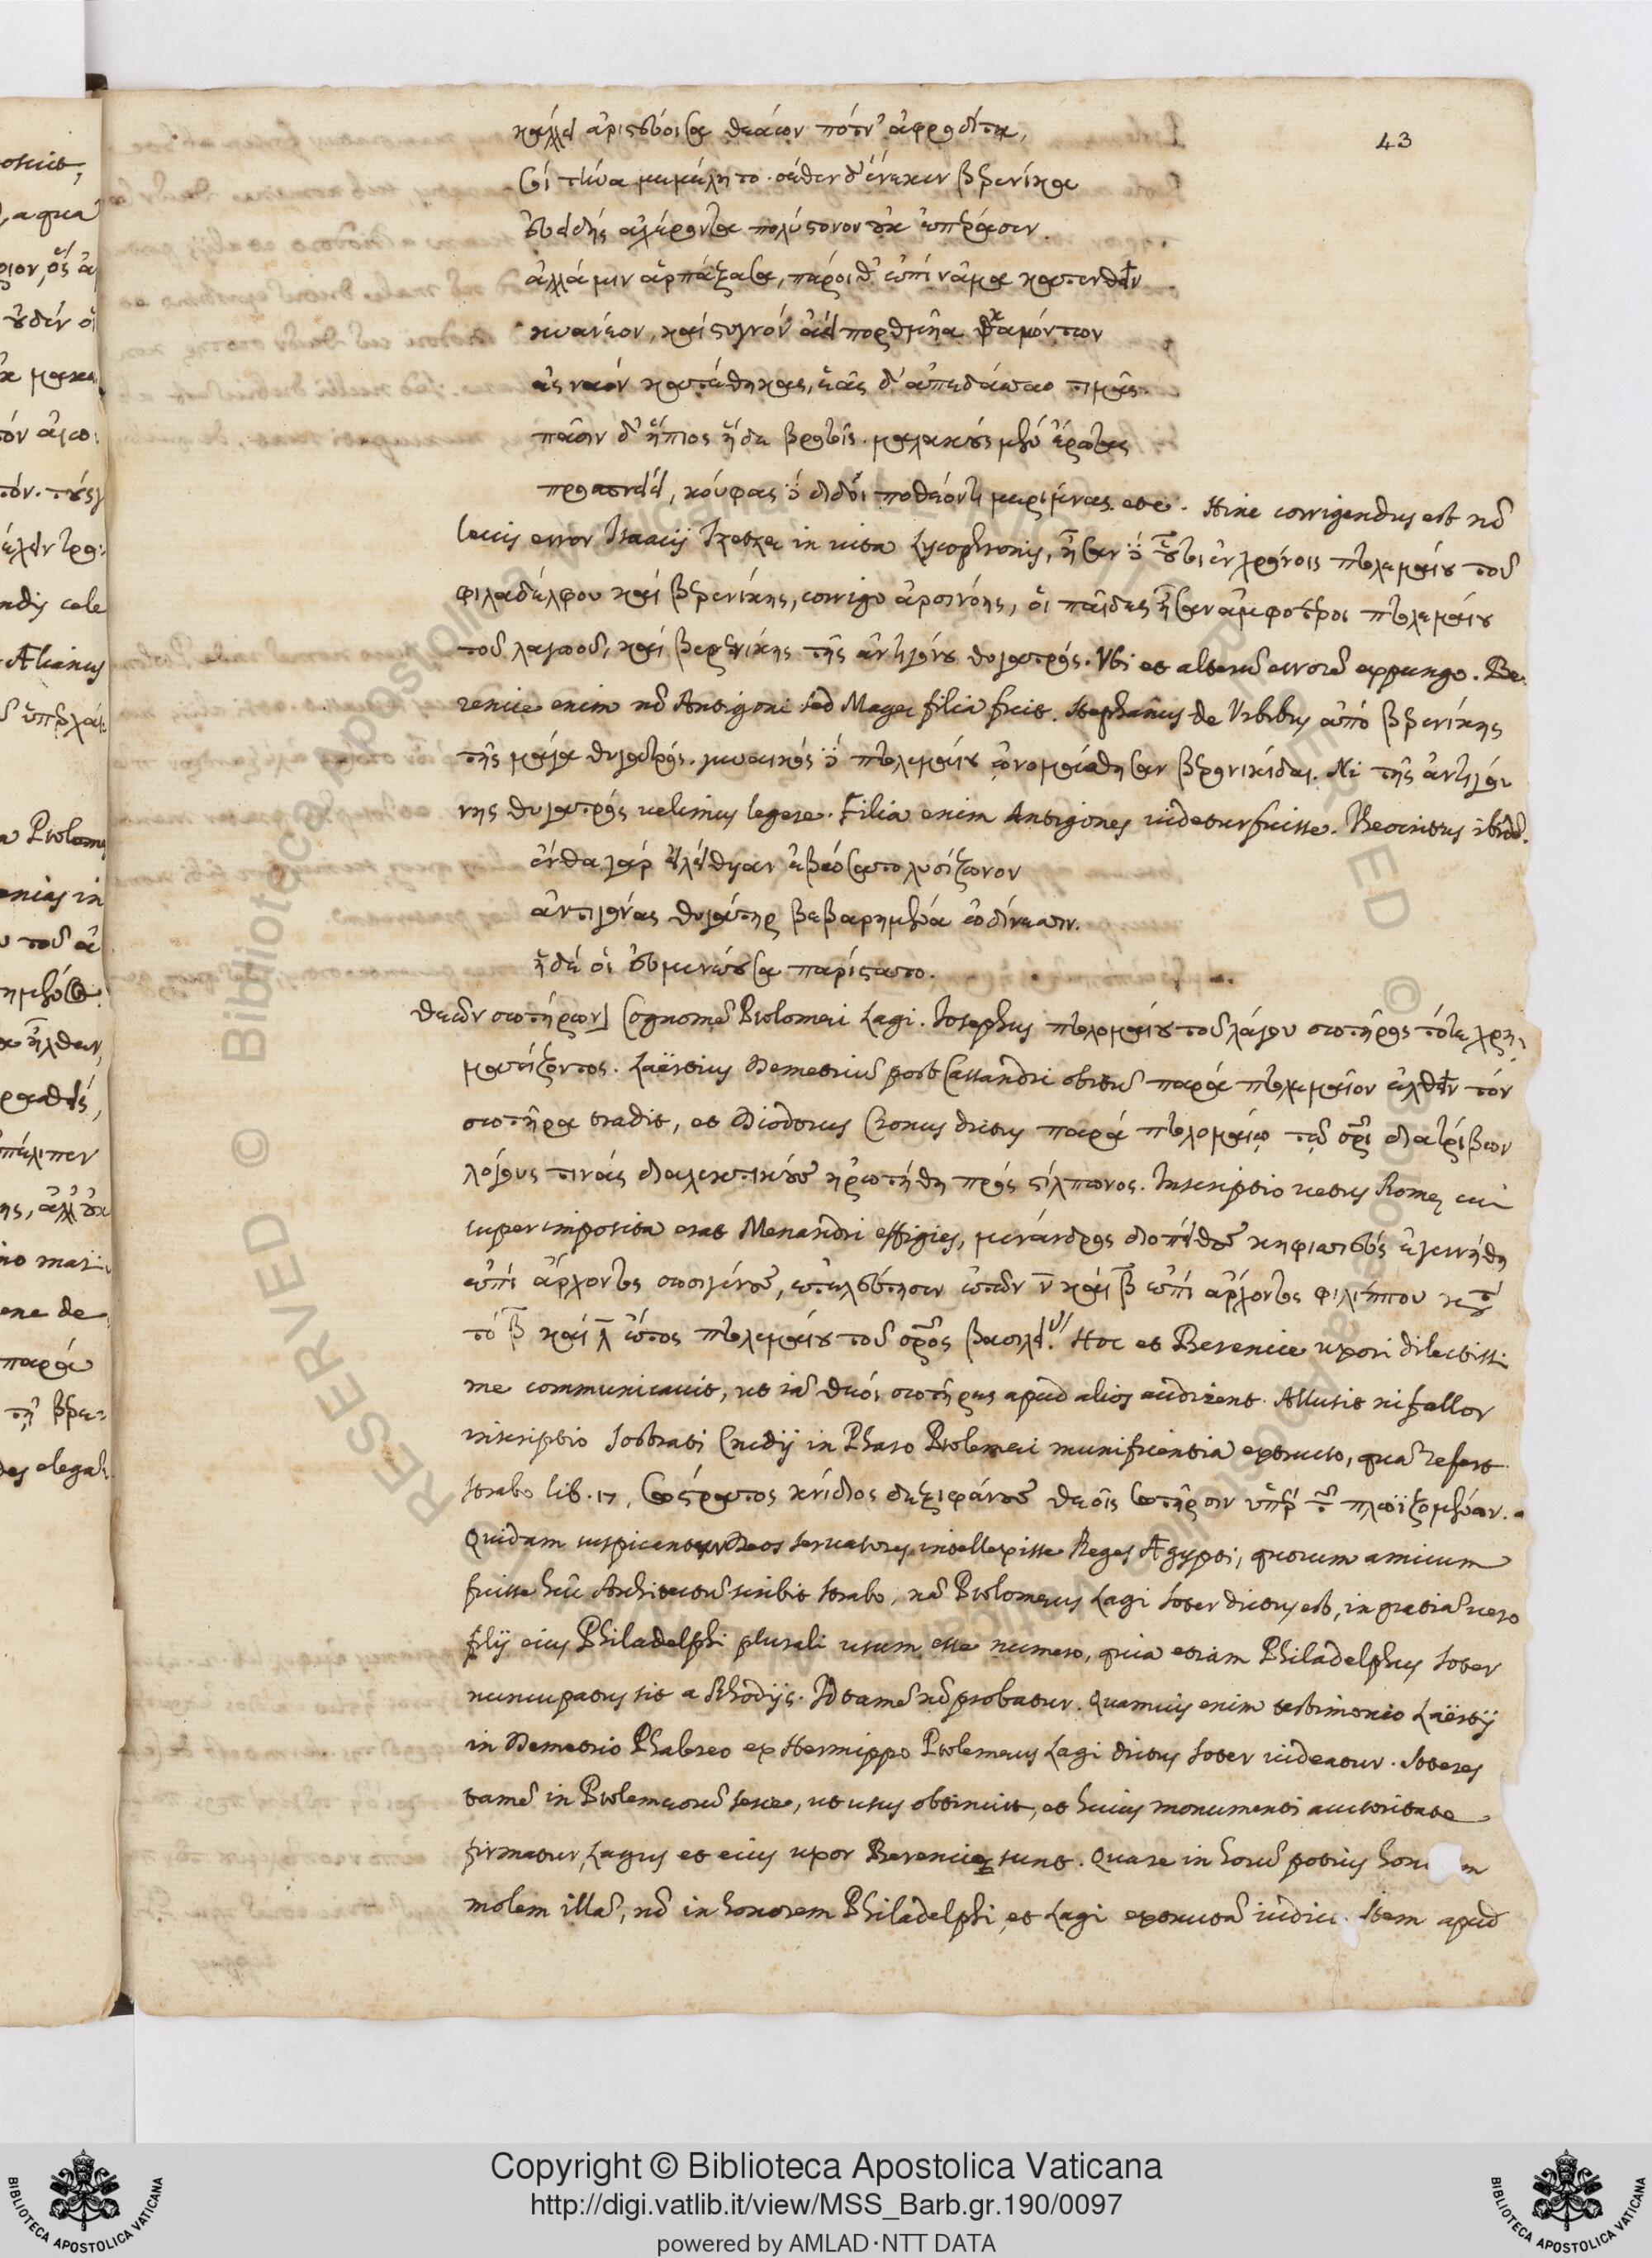 43
κάλλει ἀριστεύοισα θεάων πότν' ἀφροδίτα,
σοὶ τήνα μεμέλητο· σέθεν δ' ἕνεκεν βερενίκα
εὐειδής ἀχέροντα πολύστονον οὐκ ἐπέρασεν.
ἀλλά μιν ἁρπάξασα, πάροιθ' ἐπί νᾶμα κατενθεῖν
κυανέον, καί στυγνόν ἀεί πορθμῆα καμόντων
ἐς ναόν κατέθηκας, ἑᾶς δ' ἀπεδάσσαο τιμᾶς.
πᾶσιν δ' ἤπιος ἥδε βροτοῖς. μαλακούς μέν ἔρωτας
προσπνείει, κούφας δέ διδοῖ ποθέοντι μερίμνας. etc. Hinc corrigendus est nō
levis error Isaacij Tzetzae in vita Lycophronis, ἦσαν δέ οὗτοι ἐν χρόνοις πτολεμαίου τοῦ
φιλαδέλφου καί βερενίκης, corrigo ἀρσινόης, οἱ παῖδες ἦσαν ἀμφότεροι πτολεμαίου
τοῦ λαγωοῦ, καί βερενίκης τῆς ἀντιγόνου θυγατρός. Vbi et alterū errorē expungo. Be-
renice enim nō Antigoni sed Magae filia fuit. Stephanus de Vrbibus ἀπό βερενίκης
τῆς μάγα θυγατρός. γυναικός δέ πτολεμαίου ὠνομάσθησαν βερονικίδαι. Ni τῆς ἀντιγό-
νης θυγατρός velimus legere. Filia enim Antigones videtur fuisse. Theocritus ibidē.
ἔνθα γάρ εἰλείθυιαν ἐβώσατο λυσίζωνον
ἀντιγόνας θυγάτηρ βεβαρημένα ὠδίνεσσιν.
ἡ δέ οἱ εὐμενέουσα παρίστατο.
θεῶν σωτήρων] Cognomē Ptolomaei Lagi. Josephus πτολομαίου τοῦ λάγου σωτῆρος τότε χρη-
ματίζοντος. Laërtius Demetriū post Cassandri obitū παρά πτολεμαῖον ἐλθεῖν τόν
σωτῆρα tradit, et Diodorus Cronus dictus παρά πτολομαίῳ τῷ σωτῆρι διατρίβων
λόγους τινάς διαλεκτικούς ἠρωτήθη πρός στίλπωνος. Inscriptio vetus Romę cui
superimposita erat Menandri effigies, μένανδρος διοπείθους κηφισιεύς ἐγεννήθη
ἐπί ἄρχοντος σωσιγένους, ἐτελεύτησεν ἐτῶν ν καί β ἐπί ἄρχοντος φιλίππου κατά
τό β καί λ ἔτος πτολεμαίου τοῦ σωτῆρος βασιλείας. Hoc et Berenice uxori dilectissi-
me communicavit, ut iā θεοί σωτῆρες apud alios audirent. Allusit ni fallor
inscriptio Sostrati Cnidij in Pharo Ptolemaei munificentia extructo, quā refert
Strabo lib. 17, Σώστρατος κνίδιος δεξιφάνους θεοῖς σωτῆρσιν ὑπέρ τῶν πλωϊζομένων.
Quidam suspicantur Deos servatores intellexisse Reges AEgypti, quorum amicum
fuisse hūc Architectū scribit Strabo, nā Ptolomaeus Lagi Soter dictus est, in gratiā vero
filij eius Philadelphi plurali usum esse numero, quia etiam Philadelphus Soter
nuncupatus sit a Rhodijs. Id tamē nō probatur. Quamvis enim testimonio Laërtij
in Demetrio Phalereo ex Hermippo Ptolemaeus Lagi dictus Soter videatur. Soteres
tamē in Ptolemaeorū serie, ut usus obtinuit, et huius monumenti auctoritate
firmatur, Lagus et eius uxor Berenice sunt. Quare in horū potius
molem illā, nō in honorem Philadelphi, et Lagi extructā Item apud
Copyright © Biblioteca Apostolica Vaticana
http://digi.vatlib.it/view/MSS_Barb.gr.190/0097
powered by AMLAD·NTT DATA